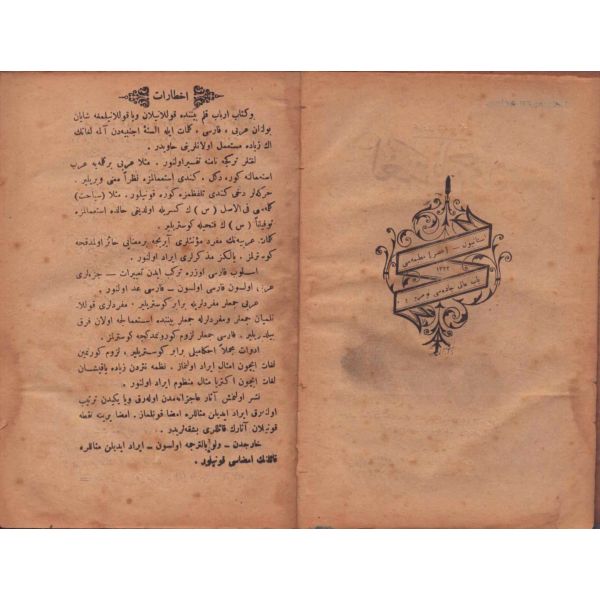 اخطارات
بو کتاب ارباب قلم بیننده قوللانیلان ویا قوللانیلمغه شایان
بولنان عربی ، فارسی ، کلمات ایله السنهٔ اجنبیه‌دن آلمه لغاتك
اك زیاده مستعمل اولانلرینی حاویدر .
لغتلر ترکیجه نامنه تفسیر اولنور . مثلا عربی بر کلمه‌یه عرب
استعمالنه کوره دکل ، کندی استعمالمزه نظراً معنی ویریلیر .
حرکه‌لر دخی کندی تلفظمزه کوره قونیلور . مثلا (سیاحت)
کلمه‌سی فی الاصل (س) ك کسریله اولدیغی حالده استعمالمزه
توفیقاً (س) ك فتحیله کوستریلیر .
کلمات عربیه‌نك مفرد مؤنثلری آیریجه بر معنایی حائز اولمدقجه
کوسترلمز . یالکز مذکرلری ایراد اولنور .
اسلوب فارسی اوزره ترکب ایدن تعبیرات — جزءلری
عربی اولسون فارسی اولسون — فارسی عد اولنور .
عربی جمعلر مفردلرینه برابر کوستریلیر . مفردلری قوللا
نلمیان جمعلر ومفردلرله جمعلر بیننده استعمالجه اولان فرق
بیلدیریلیر . فارسی جمعلر لزوم کورونمدکجه کوسترلمز .
ادوات مجملاً احکامیله برابر کوستریلیر . لزوم کورلمین
لغات ایچون امثال ایراد اولنماز . نظمه نثردن زیاده یاقیشان
لغات ایچون اکثریا مثال منظوم ایراد اولنور .
نشر اولنمش آثار عاجزانه‌مدن اوله‌رق ویا یکیدن ترتیب
اولنه‌رق ایراد ایدیلن مثاللره امضا قونلماز . امضا یرینه نقطه
قونیلان آثارك قائللری بشقه‌لریدر .
خارجدن — ولو بالترجمه اولسون — ایراد ایدیلن مثاللره
قائلنك امضاسی قونیلور .
استانبول — [خضر] مطبعه‌سی
۱۳۲۲
باب عالی جاده‌سی نومرو :